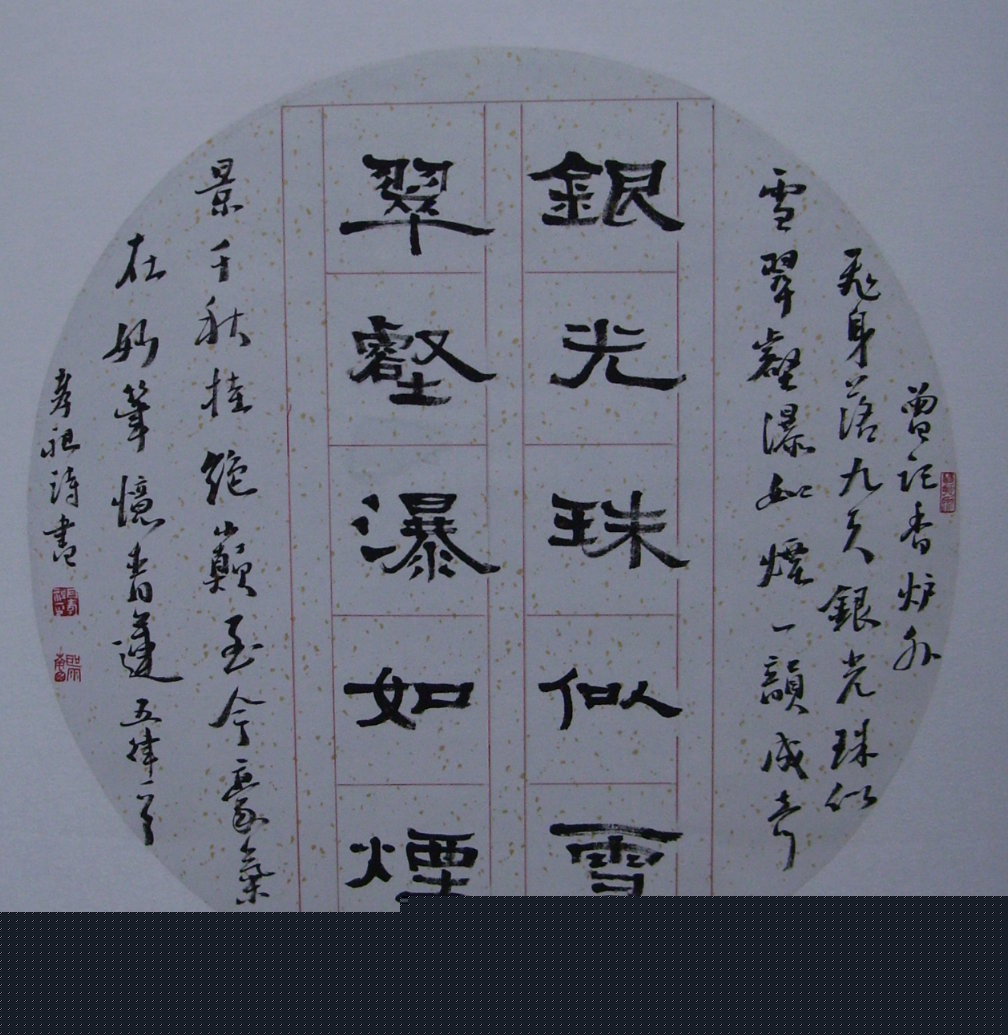 曾記香炉外
飛身落九天銀光珠似
雪翠壑瀑如煙一韻成奇
銀光珠似雪
翠壑瀑如煙
景千秋挂绝巔至今豪氣
在妙筆憶青蓮五律一首
孝祖詩書